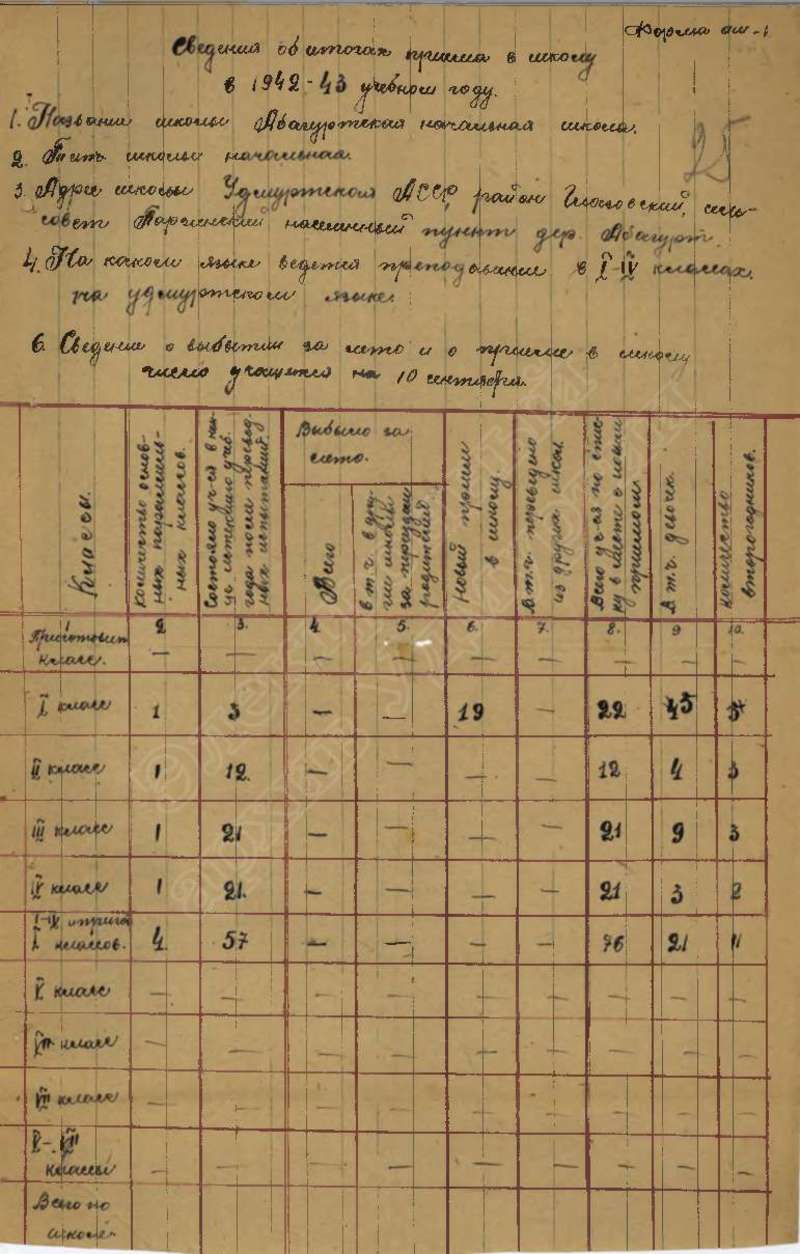 Форма ош-1
Сведения об итогах приема в школу
в 1942-43 учебном году.
25
1. Название школы Абагуртская начальная школа.
2. Тип школы начальная.
3. Адрес школы Удмуртской АССР, район Глазовский, сель-
совет Парзинский населенный пункт дер. Абагурт.
4. На каком языке ведется преподавание в I-IV классах.
на удмуртском языке
6. Сведение о выбытии за лето и о приеме в школу
число учащихся на 10 сентября.
Классы.
Количество основ-
ных параллель-
ных классов.
Состояло уч-ся в
года после перевод-
ных испытаний.
Выбыло за
лето.
Всего
в т.ч. в дру-
гие школы
за переездом
родителей
Новый прием
в школу.
В т.ч. переведено
из других школ.
Всего уч-ся по спис-
ку вместе с новым
приемом.
В т.ч. девочек.
Количество
второгодников.
1 2. 3. 4. 5. 6. 7. 8. 9 10.
Приготовит
классе. — — — — — — — — —
I класс 1 3 — — 19 — 22 5
II класс 1 12. — — — — 12 4 3
III класс 1 21 — — — — 21 9 3
IV класс 1 21. — — — — 21 3 2
I-IV
классов. 4. 57 — — — — 76 21 11
V класс — — — — — — — — —
VI класс — — — — — — — — —
VII класс — — — — — — — — —
V-VII
классы — — — — — — — — —
Всего по
школе